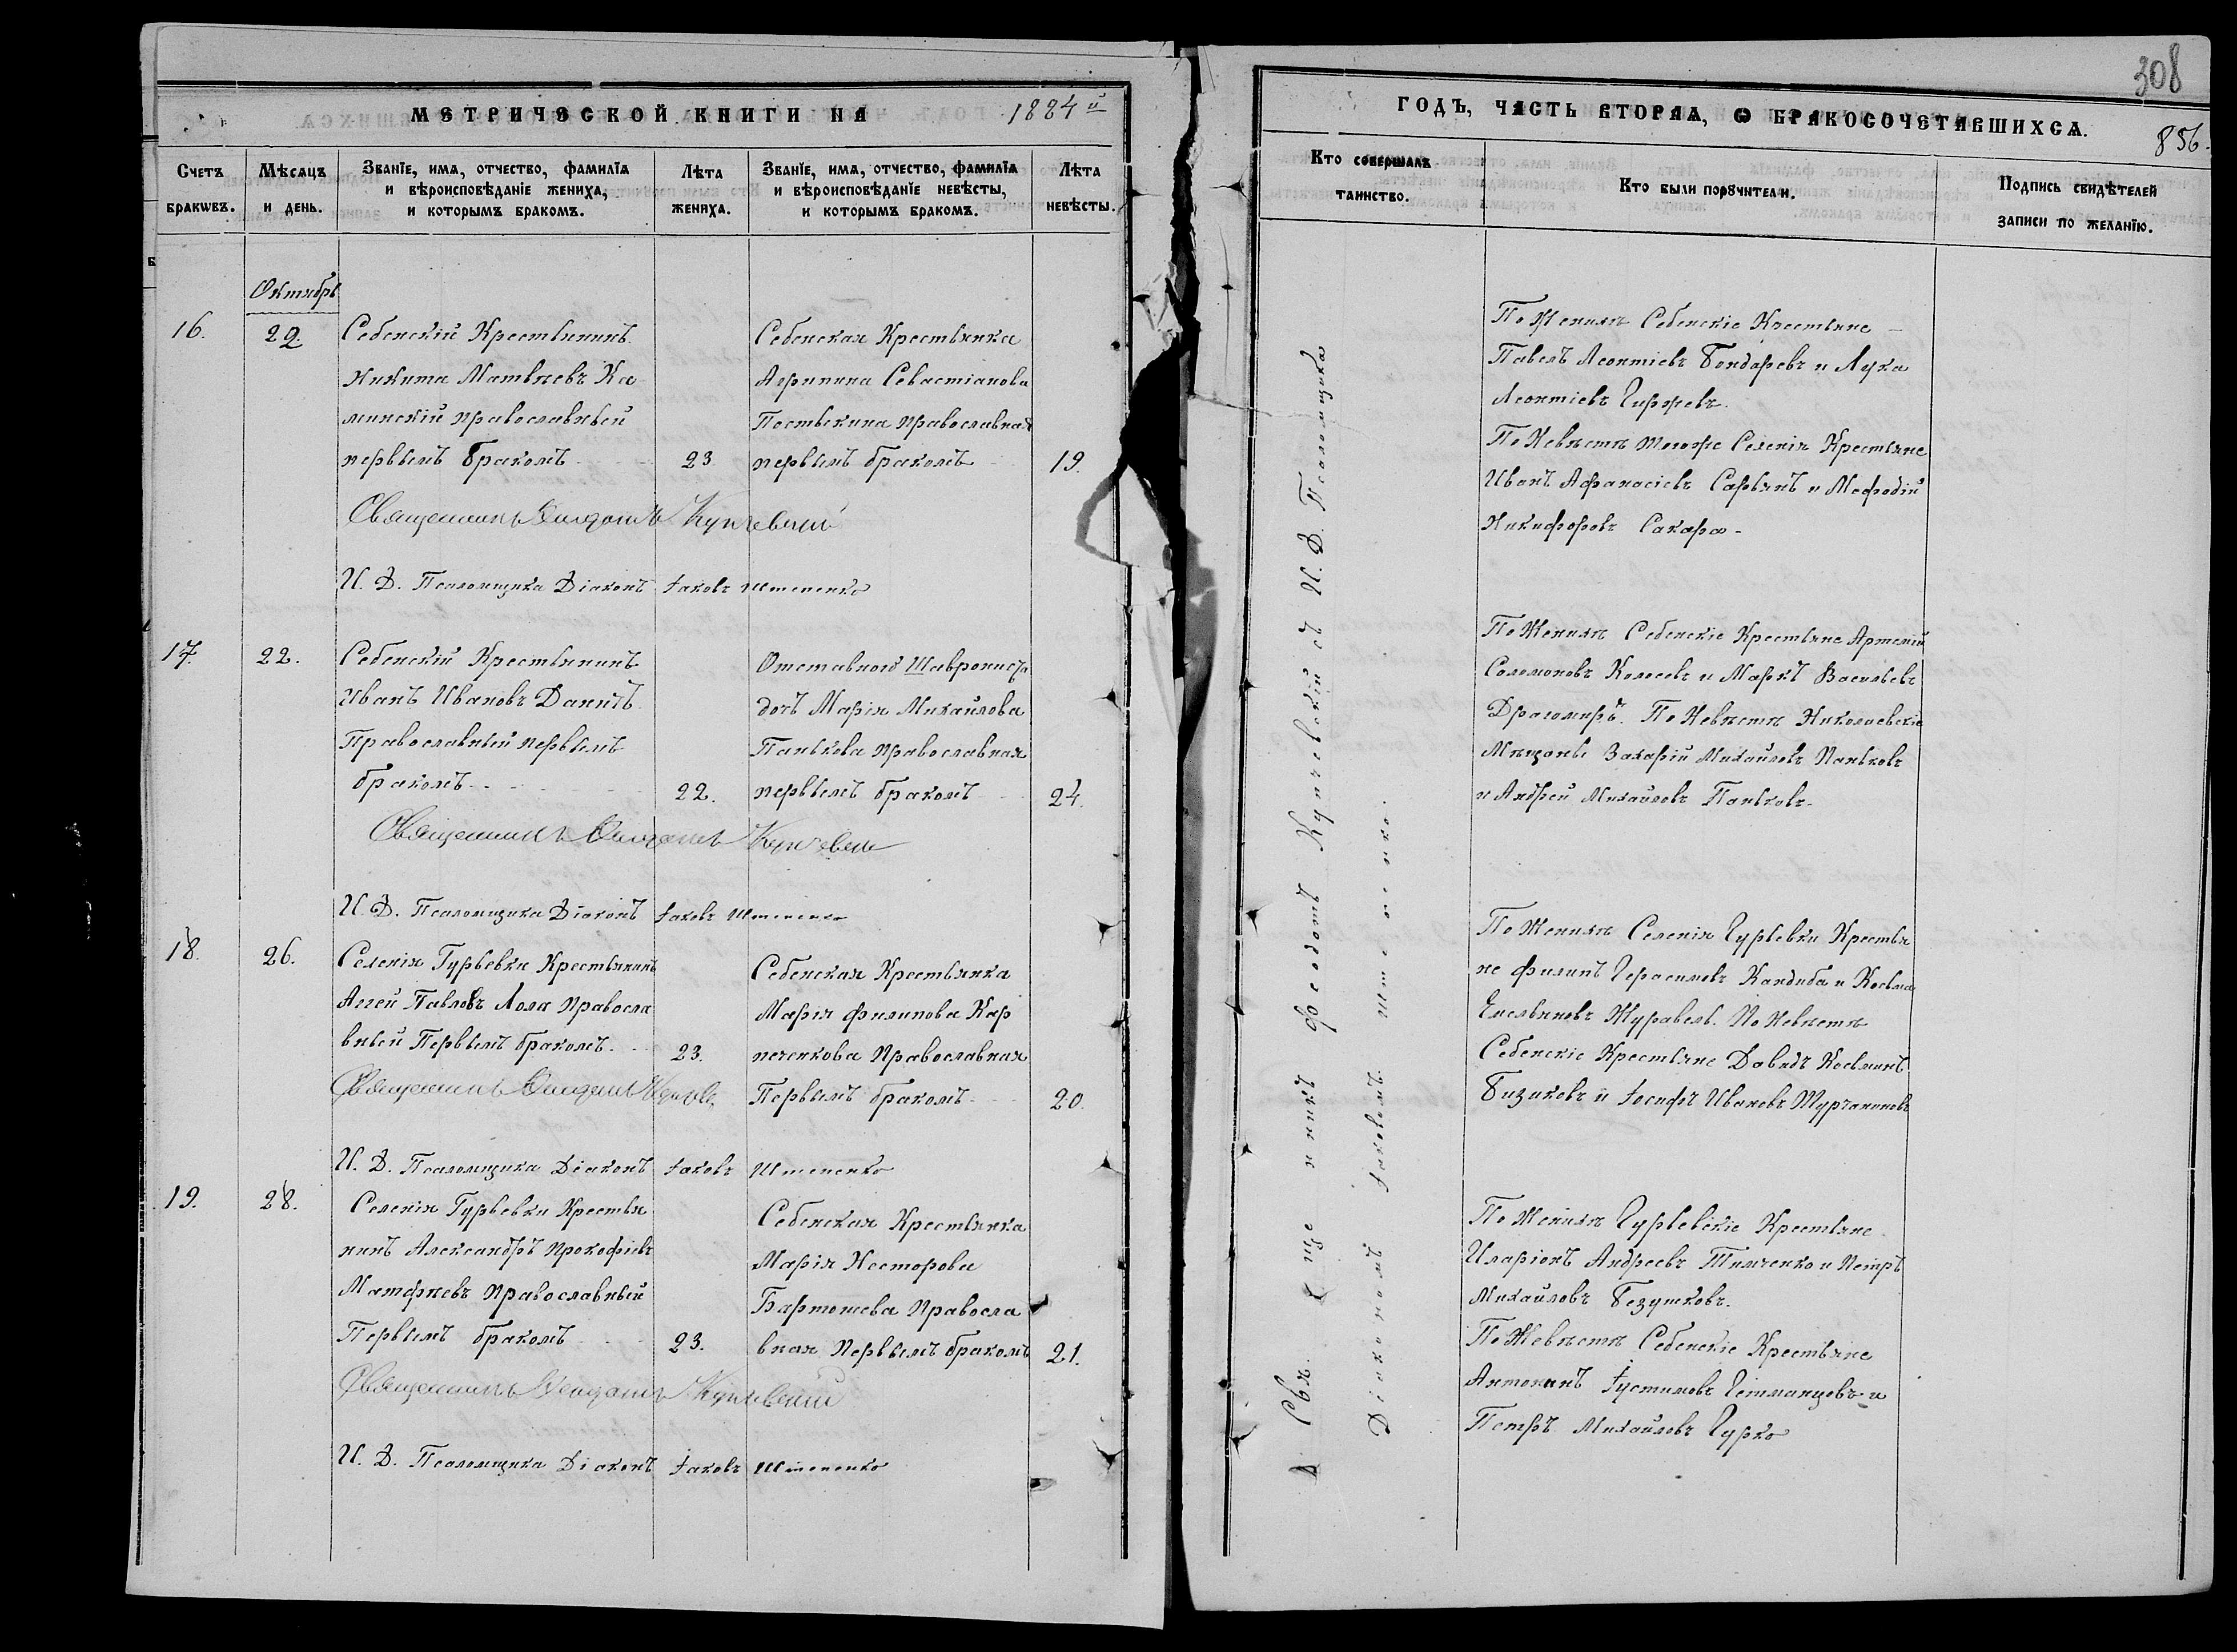 МЕТРИЧЕСКОЙ КНИГИ НА 1884й
Счетъ браковъ.
Мѣсяцъ и день.
Званіе, имя, отчество, фамилія
и вѣроисповѣданіе жениха,
и которымъ бракомъ.
Лѣта
жениха.
Званіе, имя, отчество, фамилія
и вѣроисповѣданіе невѣсты,
и которымъ бракомъ.
Лѣта
невѣсты.
Октябрь
16.
22.
Себенскій Крестьянинъ
Никита Матвѣевъ Ка
минскій Православный
первымъ бракомъ
23
Себенская Крестьянка
Агрипина Севастіанова
Постыкина Православная
первымъ бракомъ
19.
Священникъ Феодотъ Купчевскій
И. Д. Псаломщика Діаконъ Іаковъ Штепенко
17.
22.
Себенскій Крестьянинъ
Иванъ Ивановъ Данитъ
Православный первымъ
бракомъ
22.
Отставного
дочь Марія Михайлова
Панькова Православная
первымъ бракомъ
24.
Священникъ Феодотъ
И. Д. Псаломщика Діаконъ Іаковъ Штепенко
18.
26.
Селенія Гурьевки Крестьянинъ
Аггей Павловъ Лола Правосла
вный Первымъ бракомъ
23.
Себенская Крестьянка
Марія Филипова Кар
печенкова Православная
Первымъ бракомъ
20.
Священникъ Феодотъ
И. Д. Псаломщика Діаконъ Іаковъ Штепенко
19.
28.
Селенія Гурьевки Крестья
нинъ Александръ Прокофіевъ
Матфѣевъ Православный
Первымъ бракомъ
23.
Себенская Крестьянка
Марія Несторова
Бартошева Правосла
вная Первымъ бракомъ
21.
Священникъ Феодотъ Купчевскій
И. Д. Псаломщика Діаконъ Іаковъ Штепенко
308
ГОДЪ, ЧАСТЬ ВТОРАЯ, Ѡ БРАКОСОЧЕТАВШИХСЯ.
856.
Кто совершалъ
таинство.
Кто были поручители.
Подпись свидѣтелей
записи по желанію.
Священникъ Феодотъ Купчевскій съ И. Д. Псаломщика
Діакономъ Іаковомъ Штепенко.
По Женихѣ Себенскіе Крестьяне
Павелъ Леонтіевъ Бондаревъ и Лука
Леонтіевъ
По Невѣстѣ тогоже Селенія Крестьяне
Иванъ Афанасіевъ Сарьянъ и Мефодій
Никифоровъ Сахаро-
По Женихѣ Себенскіе Крестьяне Артемій
Соломоновъ Колосовъ и Маркъ Васильевъ
Драгомиръ. По Невѣстѣ Николаевскіе
Мѣщане Захарій Михайловъ Паньковъ
и Андрей Михайловъ Паньковъ
По Женихѣ Селенія Гурьевки Крестья
не Филипъ Герасимовъ Кандиба и Косьма
Емельяновъ Журавель. По Невѣстѣ
Себенскіе Крестьяне Давидъ Косьминъ
Бизиковъ и Іосифъ Ивановъ Турчаниновъ
По Женихѣ Гурьевскіе Крестьяне
Иларіонъ Андреевъ Тимченко и Петръ
Михайловъ Безушковъ.
По Невѣстѣ Себенскіе Крестьяне
Антонинъ Іустиновъ Гетманцовъ и
Петръ Михайловъ Гурко